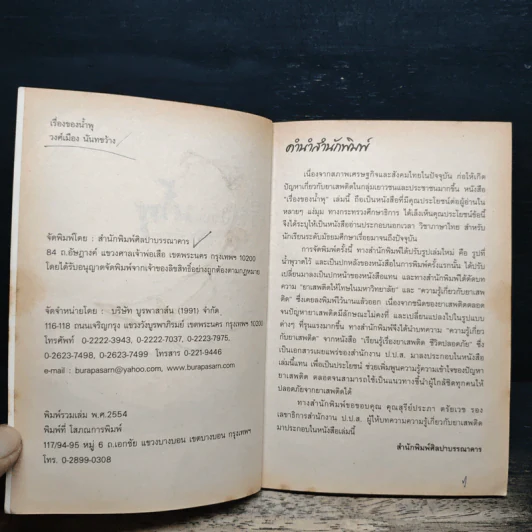 เรื่องของน้ำพุ
วงศ์เมือง นันทขว้าง
จัดพิมพ์โดย : สำนักพิมพ์ศิลปาบรรณาคาร
84 ถ.อัษฎางค์ แขวงศาลเจ้าพ่อเสือ เขตพระนคร กรุงเทพฯ 10200
โดยได้รับอนุญาตจัดพิมพ์จากเจ้าของลิขสิทธิ์อย่างถูกต้องตามกฎหมาย
จัดจำหน่ายโดย : บริษัท บูรพาสาส์น (1991) จำกัด
116-118 ถนนเจริญกรุง แขวงวังบูรพาภิรมย์ เขตพระนคร กรุงเทพฯ 10200
โทรศัพท์ 0-2222-3943, 0-2222-7037, 0-2223-7975,
0-2623-7498, 0-2623-7499 โทรสาร 0-221-9446
e-mail : burapasarn@yahoo.com, www.burapasarn.com
พิมพ์รวมเล่ม พ.ศ.2554
พิมพ์ที่ โสภณการพิมพ์
117/94-95 หมู่ 6 ถ.เอกชัย แขวงบางบอน เขตบางบอน กรุงเทพฯ
โทร. 0-2899-0308
คำนำสำนักพิมพ์
เนื่องจากสภาพเศรษฐกิจและสังคมไทยในปัจจุบัน ก่อให้เกิด
ปัญหาเกี่ยวกับยาเสพติดในกลุ่มเยาวชนและประชาชนมากขึ้น หนังสือ
"เรื่องของน้ำพุ" เล่มนี้ ถือเป็นหนังสือที่มีคุณประโยชน์ต่อผู้อ่านใน
หลายๆ แง่มุม ทางกระทรวงศึกษาธิการ ได้เล็งเห็นคุณประโยชน์ข้อนี้
จึงได้ระบุให้เป็นหนังสืออ่านประกอบนอกเวลา วิชาภาษาไทย สำหรับ
นักเรียนระดับมัธยมศึกษาเรื่อยมาจนถึงปัจจุบัน
การจัดพิมพ์ครั้งนี้ ทางสำนักพิมพ์ได้ปรับรูปเล่มใหม่ คือ รูปที่
น้ำพุวาดไว้ และเป็นปกหลังของหนังสือในการพิมพ์ครั้งแรกนั้น ได้ปรับ
เปลี่ยนมาลงเป็นปกหน้าของหนังสือแทน และทางสำนักพิมพ์ได้ตัดบท
ความ "ยาเสพติดให้โทษในมหาวิทยาลัย" และ "ความรู้เกี่ยวกับยาเสพ
ติด" ซึ่งเคยลงพิมพ์ไว้นานแล้วออก เนื่องจากชนิดของยาเสพติดตลอด
จนปัญหายาเสพติดมีลักษณะไม่คงที่ และเปลี่ยนแปลงไปในรูปแบบ
ต่างๆ ที่รุนแรงมากขึ้น ทางสำนักพิมพ์จึงได้นำบทความ "ความรู้เกี่ยว
กับยาเสพติด" จากหนังสือ "เรียนรู้เรื่องยาเสพติด ชีวิตปลอดภัย" ซึ่ง
เป็นเอกสารเผยแพร่ของสำนักงาน ป.ป.ส. มาลงประกอบในหนังสือ
เล่มนี้แทน เพื่อเป็นประโยชน์ ช่วยเพิ่มพูนความรู้ความเข้าใจของปัญหา
ยาเสพติด ตลอดจนสามารถใช้เป็นแนวทางชี้นำผู้ใกล้ชิดทุกคนให้
ปลอดภัยจากยาเสพติดได้
ทางสำนักพิมพ์ขอขอบคุณ คุณสุรีย์ประภา ตรัยเวช รอง
เลขาธิการสำนักงาน ป.ป.ส. ผู้ให้บทความความรู้เกี่ยวกับยาเสพติด
มาประกอบในหนังสือเล่มนี้
สำนักพิมพ์ศิลปาบรรณาคาร